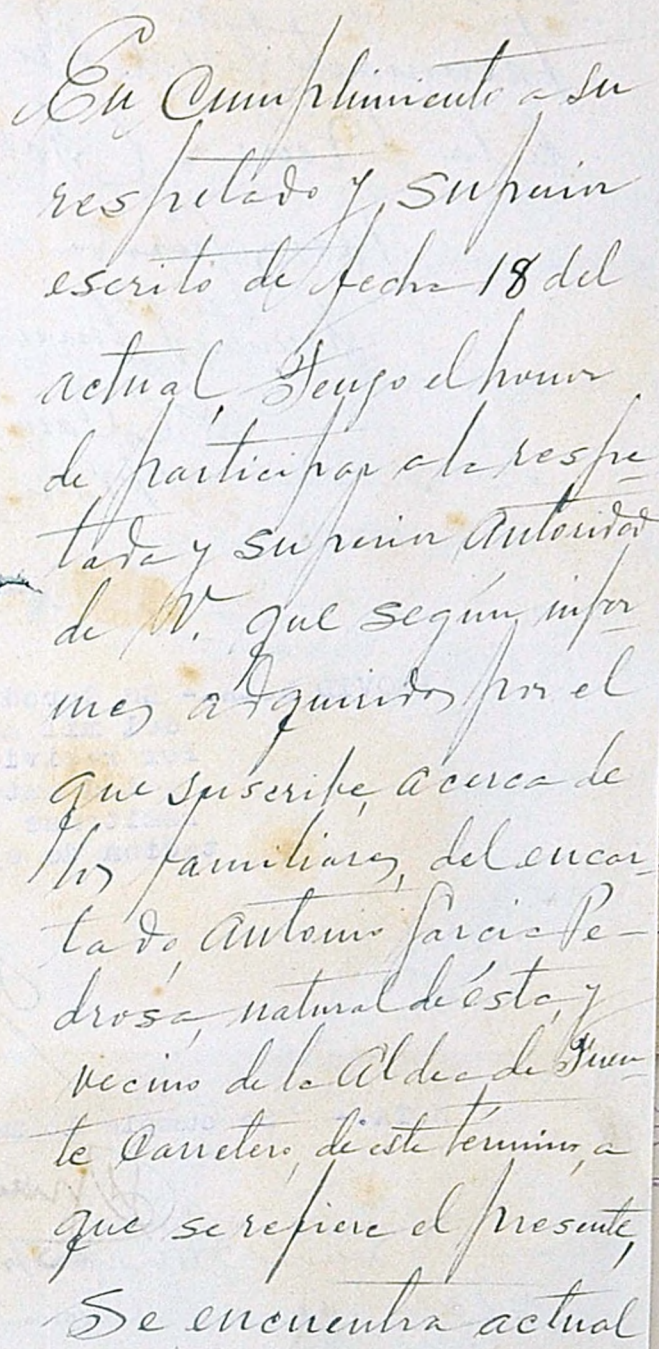 En Cumplimiento a su
respetado y superior
escrito de fecha 18 del
actual, Tengo el honor
de participar a la respe-
tada y superior Autoridad
de V. que según infor-
mes adquiridos por el
que suscribe, acerca de
los familiares, del encar-
tado, Antonio Garcia Pe-
drosa, natural de ésta, y
vecino de la Aldea de Fuen-
te Carretero, de este término, a
que se refiere el presente,
Se encuentra actual